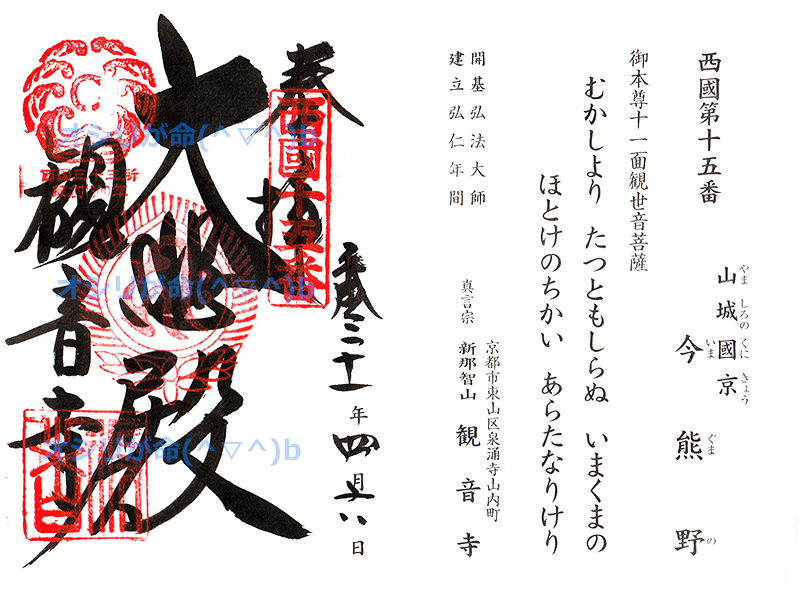 西國第十五番
山城國京
やま しろの くに きょう
今熊野
いま ぐま の
御本尊十一面観世音菩薩
むかしより たつともしらぬ いまくまの
ほとけのちかい あらたなりけり
開基弘法大師
建立弘仁年間
京都市東山区泉涌寺山内町
真言宗 新那智山 観音寺
奉拝
西國十五番
平成二十一年四月 八日
大悲殿
観音寺
オシリが命(^▽^)b
オシリが命(^▽^)b
オシリが命(^▽^)b